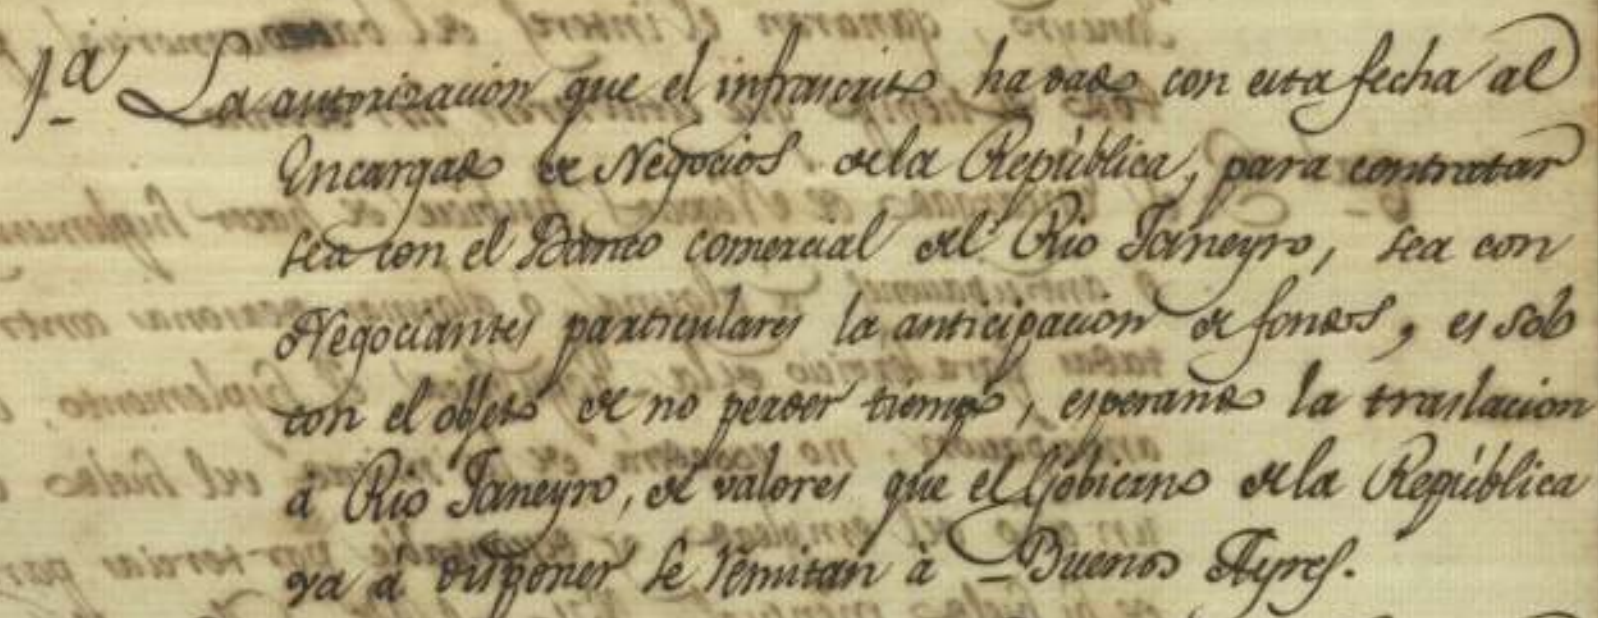 1ª La autorizacion que el infrascrito ha dado con esta fecha al
Encargado de Negocios de la República, para contratar
sea con el Banco comercial del Rio Janeyro, sea con
Negociantes particulares la anticipacion de fondos, es solo
con el objeto de no perder tiempo, esperando la traslacion
á Rio Janeyro, de valores que el Gobierno de la República
va á disponer se remitan á Buenos Ayres.